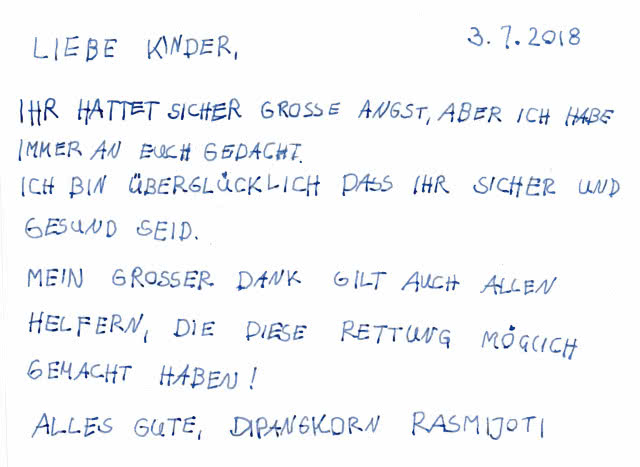 3.7.2018
LIEBE KINDER,
IHR HATTET SICHER GROSSE ANGST, ABER ICH HABE
IMMER AN EUCH GEDACHT.
ICH BIN ÜBERGLÜCKLICH DASS IHR SICHER UND
GESUND SEID.
MEIN GROSSER DANK GILT AUCH ALLEN
HELFERN, DIE DIESE RETTUNG MÖGLICH
GEMACHT HABEN!
ALLES GUTE, DIPANGKORN RASMIJOTI